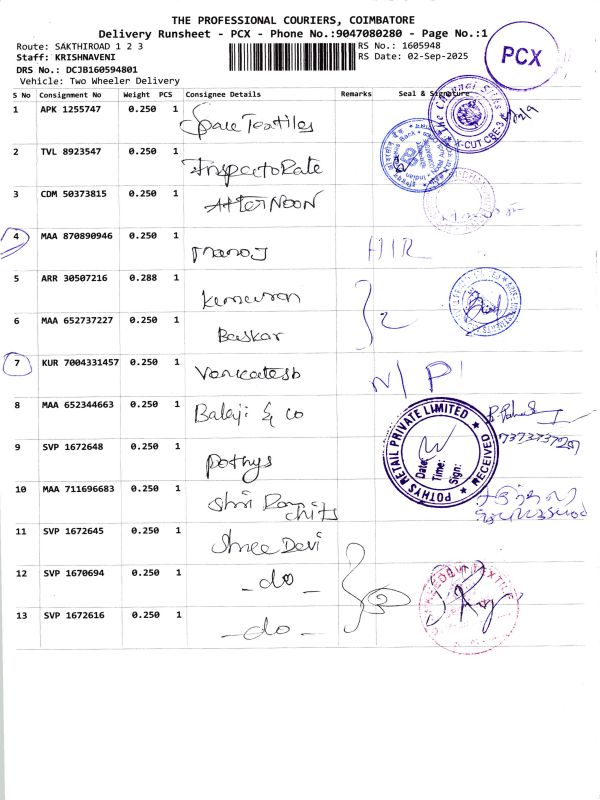 THE PROFESSIONAL COURIERS, COIMBATORE
Delivery Runsheet - PCX - Phone No.:9047080280 - Page No.:1
Route: SAKTHIROAD 1 2 3
RS No.: 1605948
Staff: KRISHNAVENI
RS Date: 02-Sep-2025
DRS No.: DCJB160594801
Vehicle: Two Wheeler Delivery
PCX
S No Consignment No Weight PCS Consignee Details Remarks Seal & Signature
1 APK 1255747 0.250 1 Space Textiles
The Channel Silks
X-CUT CBE-3
2 TVL 8923547 0.250 1 InspectoRate
3 CDM 50373815 0.250 1 AFTERNOON
4 MAA 870890946 0.250 1 Manoj
5 ARR 30507216 0.288 1
6 MAA 652737227 0.250 1 Baskar 2
7 KUR 7004331457 0.250 1 Venkatesh N/P
8 MAA 652344663 0.250 1 Balaji & co
9 SVP 1672648 0.250 1 Pothys
POTHYS RETAIL PRIVATE LIMITED
RECEIVED
Date:
Time:
Sign:
10 MAA 711696683 0.250 1 Shri Ram Chits
11 SVP 1672645 0.250 1 Shree Devi
12 SVP 1670694 0.250 1 -do-
13 SVP 1672616 0.250 1 -do-